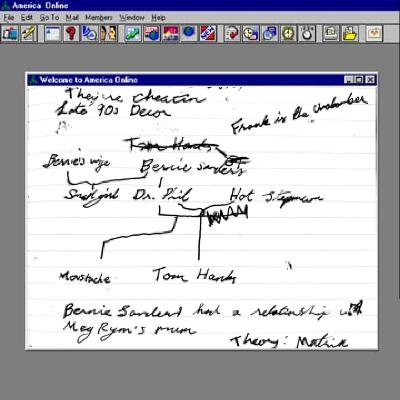 America Online
File Edit Go To Mail Members Window Help
Welcome to America Online
They're cheatin
Late 90s Decor
Frank is the unabomber
Tom Hanks
Bernie's wife
Bernie Sanders
Snort girl Dr. Phil Hot Stepmom
Moustache Tom Hanks
Bernie Sanders had a relationship with
Meg Ryan's mum
Theory: Matrix